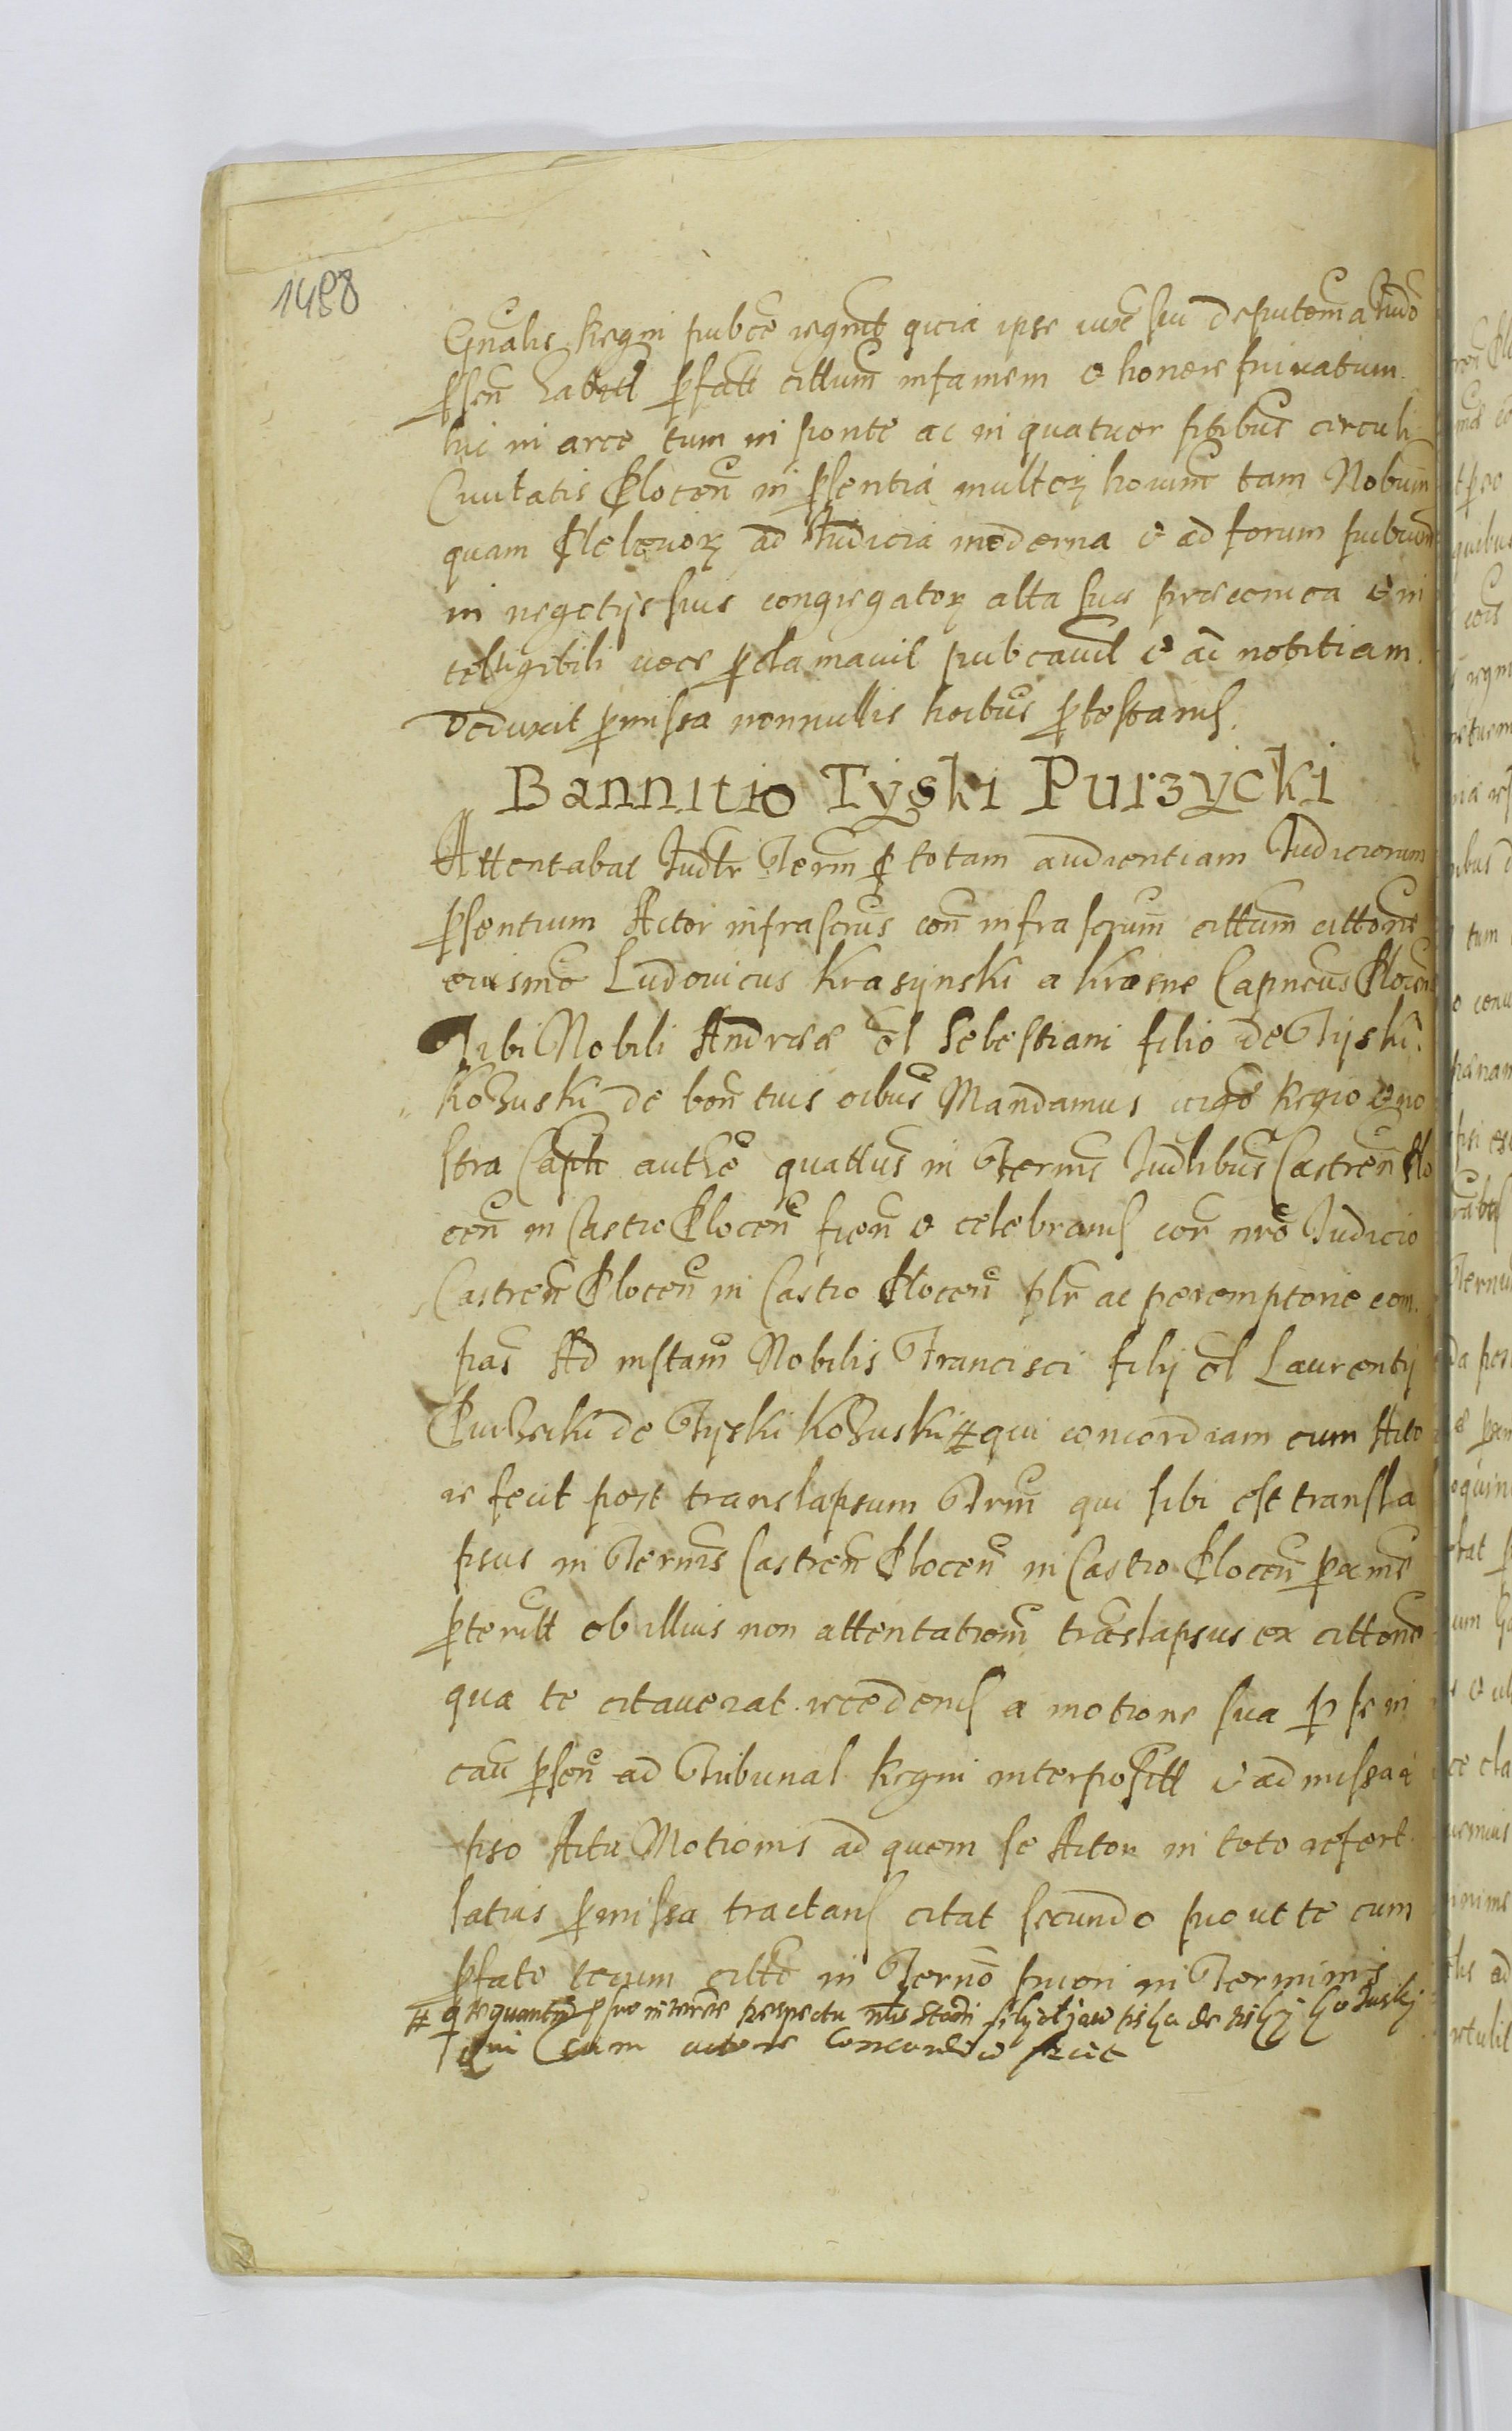 1488
Gnalis Regni pubce recgnt quia ipse iuxe sui deputema Iudo
psen habit pfatt cittum infamem & honore privatum
hic in arce tum in ponte ac in quatuor ptibus circuli
Civitatis Plocen in psentia multor homim tam Nobium
quam Plebeior ad Iudicia moderna & ad forum pubcum
in negotijs suis congregator alta sua præconica & in
telligibili voce pclamavit pubcavit & ad notitiam
deduxit pmissa nonnullis hoibus ptestans.
Bannitio Tyski Purzycki
Attentabat Iudtr Term p totam audientiam Iudiciorum
psentium Actor infrascrus con infrascrum cittum cittone
eiusmo Ludovicus Krasynski a Krasne Capneus Plocen
Tibi Nobili Andreæ ol Sebestiani filio de Tyski
Kozuski de bon tuis oibus Mandamus Regio & no
stra Capli authe quattus in Termis Iudlibus Castren Plo
cen in Castro Plocen fien & celebrans cor nro Iudicio
Castren Plocen in Castro Plocen plr ac peremptorie com
pas Ad instam Nobilis Francisci filij ol Laurentij
Purzicki de Tyski Kozuski # qui concordiam cum Acto
re fecit post translapsum Trm qui sibi est transla
psus in Termis Castren Plocen in Castro Plocen pxime
pteritt ob illius non attentationem translapsus ex cittone
qua te citaverat recedens a motione sua p se in
cau psen ad Tribunal Regni interpositt & admissa i
pso Actu Motionis ad quem se Actor in toto refert
latius pmissa tractans citat secundo prout te cum
pfato tecum citto in Termo priori in Terminis
# pro interesse respectu nlis filij de Kozuskj
qui cum actore concordia fecit